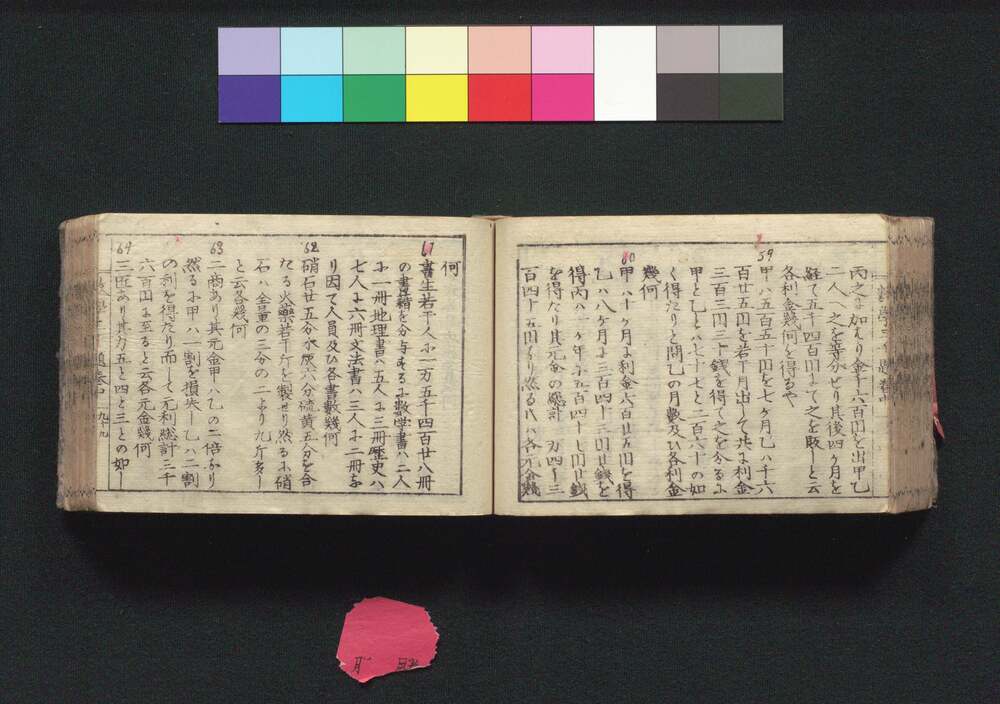 丙之ニ加ハり金千六百円を出甲乙
二人へ之を等分せり其後四ヶ月を
経て五千四百円にて之を販しと云
各利金幾何を得るや
59
甲ハ五百五十円を七ヶ月乙ハ千六
百廿五円を若干月出して共に利金
三百三円三十銭を得て之を分るに
甲と乙とハ七十七と二百六十の如
く得たりと問乙の月数及ひ各利金
幾何
60
甲ハ十ヶ月に利金六百廿五円を得
乙ハ八ヶ月に三百四十三円廿銭を
得丙ハ一ヶ年に五百四十七円廿銭
を得たり其元金の総計 万四千三
百四十五円なり然る片ハ各元金幾
何
61
書生若干人に一万五千四百廿八冊
の書籍を分与するに数学書ハ二人
に一冊地理書ハ五人に三冊歴史ハ
七人に六冊文法書ハ三人に二冊な
り因て人員及ひ各書数幾何
62
硝石廿五分木炭六分硫黄五分を合
たる火薬若干斤を製せり然るに硝
石ハ全量の三分の二より九斤多し
と云各幾何
63
二商あり其元金甲ハ乙の二倍なり
然るに甲ハ一割を損失し乙ハ二割
の利を得たり而して元利総計三千
六百円に至ると云各元金幾何
64
三匠あり其力五と四と三との如し